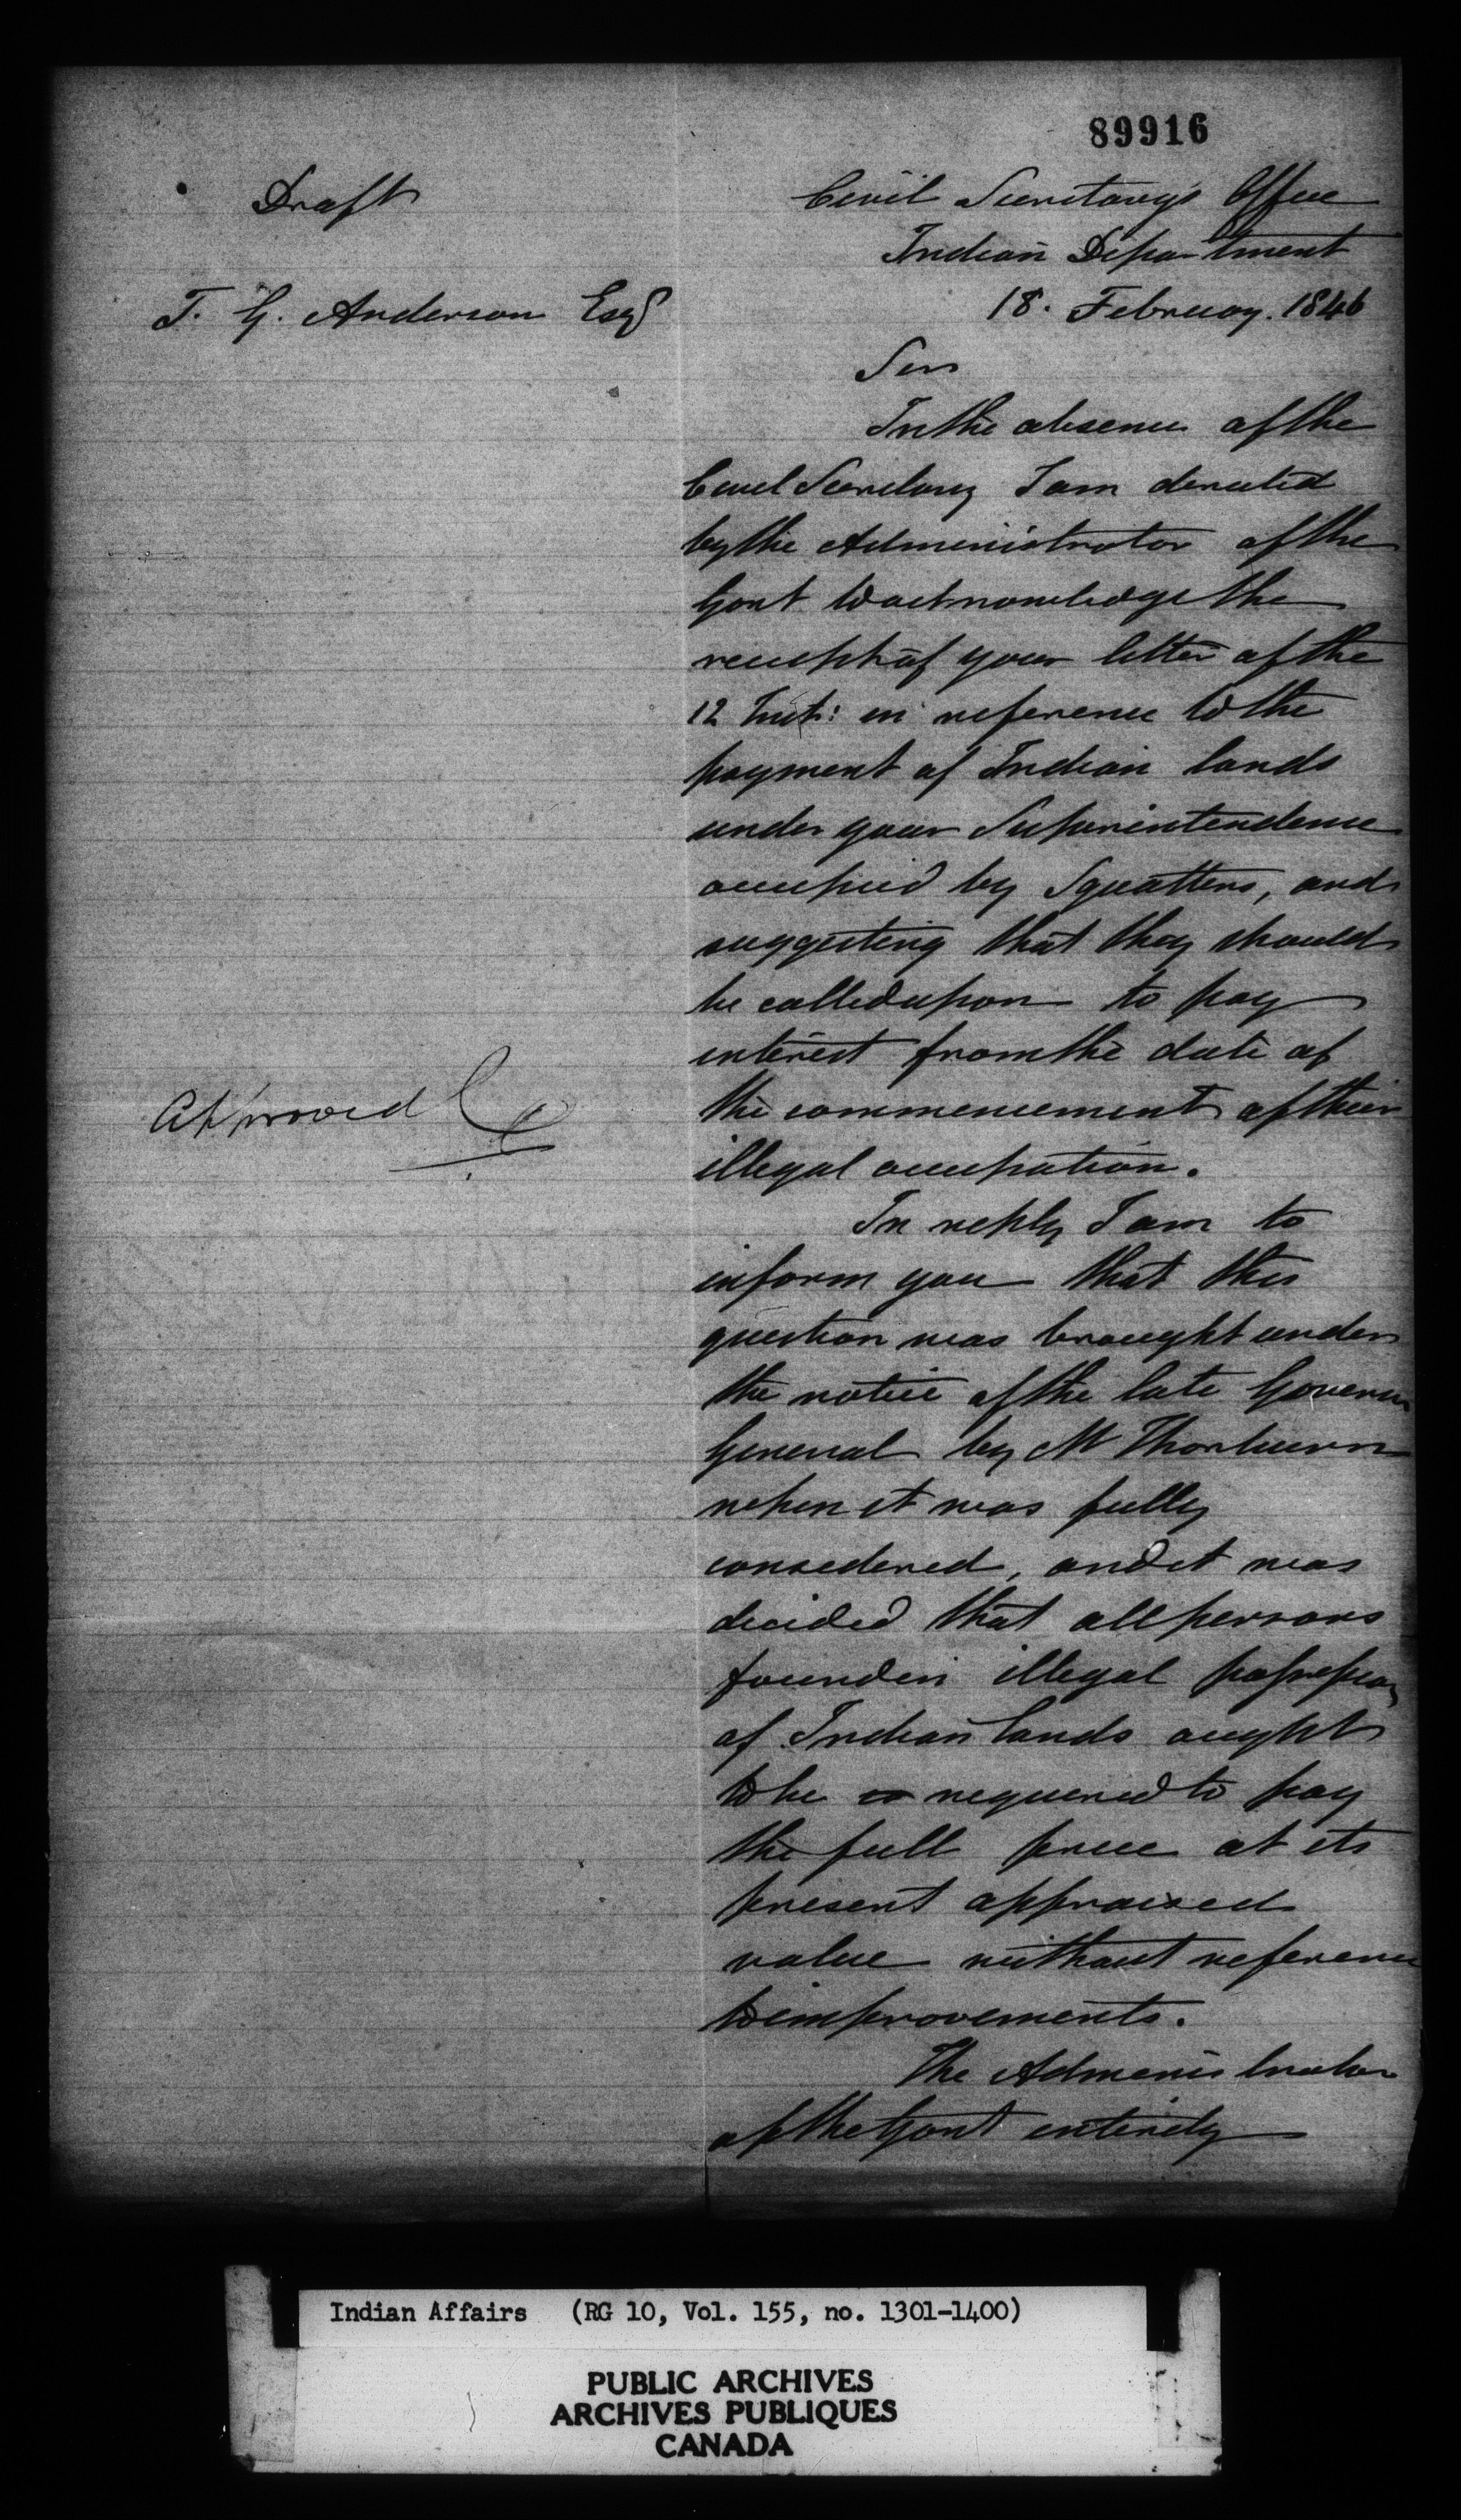 89916
Draft
Civil Secretary's Office
Indian Department
T. G. Anderson Esqr
18. February. 1846
Sir
In the absence of the
Civil Secretary I am directed
by the Administrator of the
Govt to acknowledge the
receipt of your letter of the
12 Inst: in reference to the
payment of Indian lands
under your Superintendence
occupied by Squatters, and
suggesting that they should
be called upon to pay
interest from the date of
Approved
the commencement of their
illegal occupation.
In reply I am to
inform you that this
question was brought under
the notice of the late Governor
General by Mr Thorburn
when it was fully
considered, and it was
decided that all persons
found in illegal possession
of Indian lands ought
to be required to pay
the full price at its
present appraised
value without reference
to improvements.
The Administrator
of the Govt entirely
Indian Affairs (RG 10, Vol. 155, no. 1301-1400)
PUBLIC ARCHIVES
ARCHIVES PUBLIQUES
CANADA